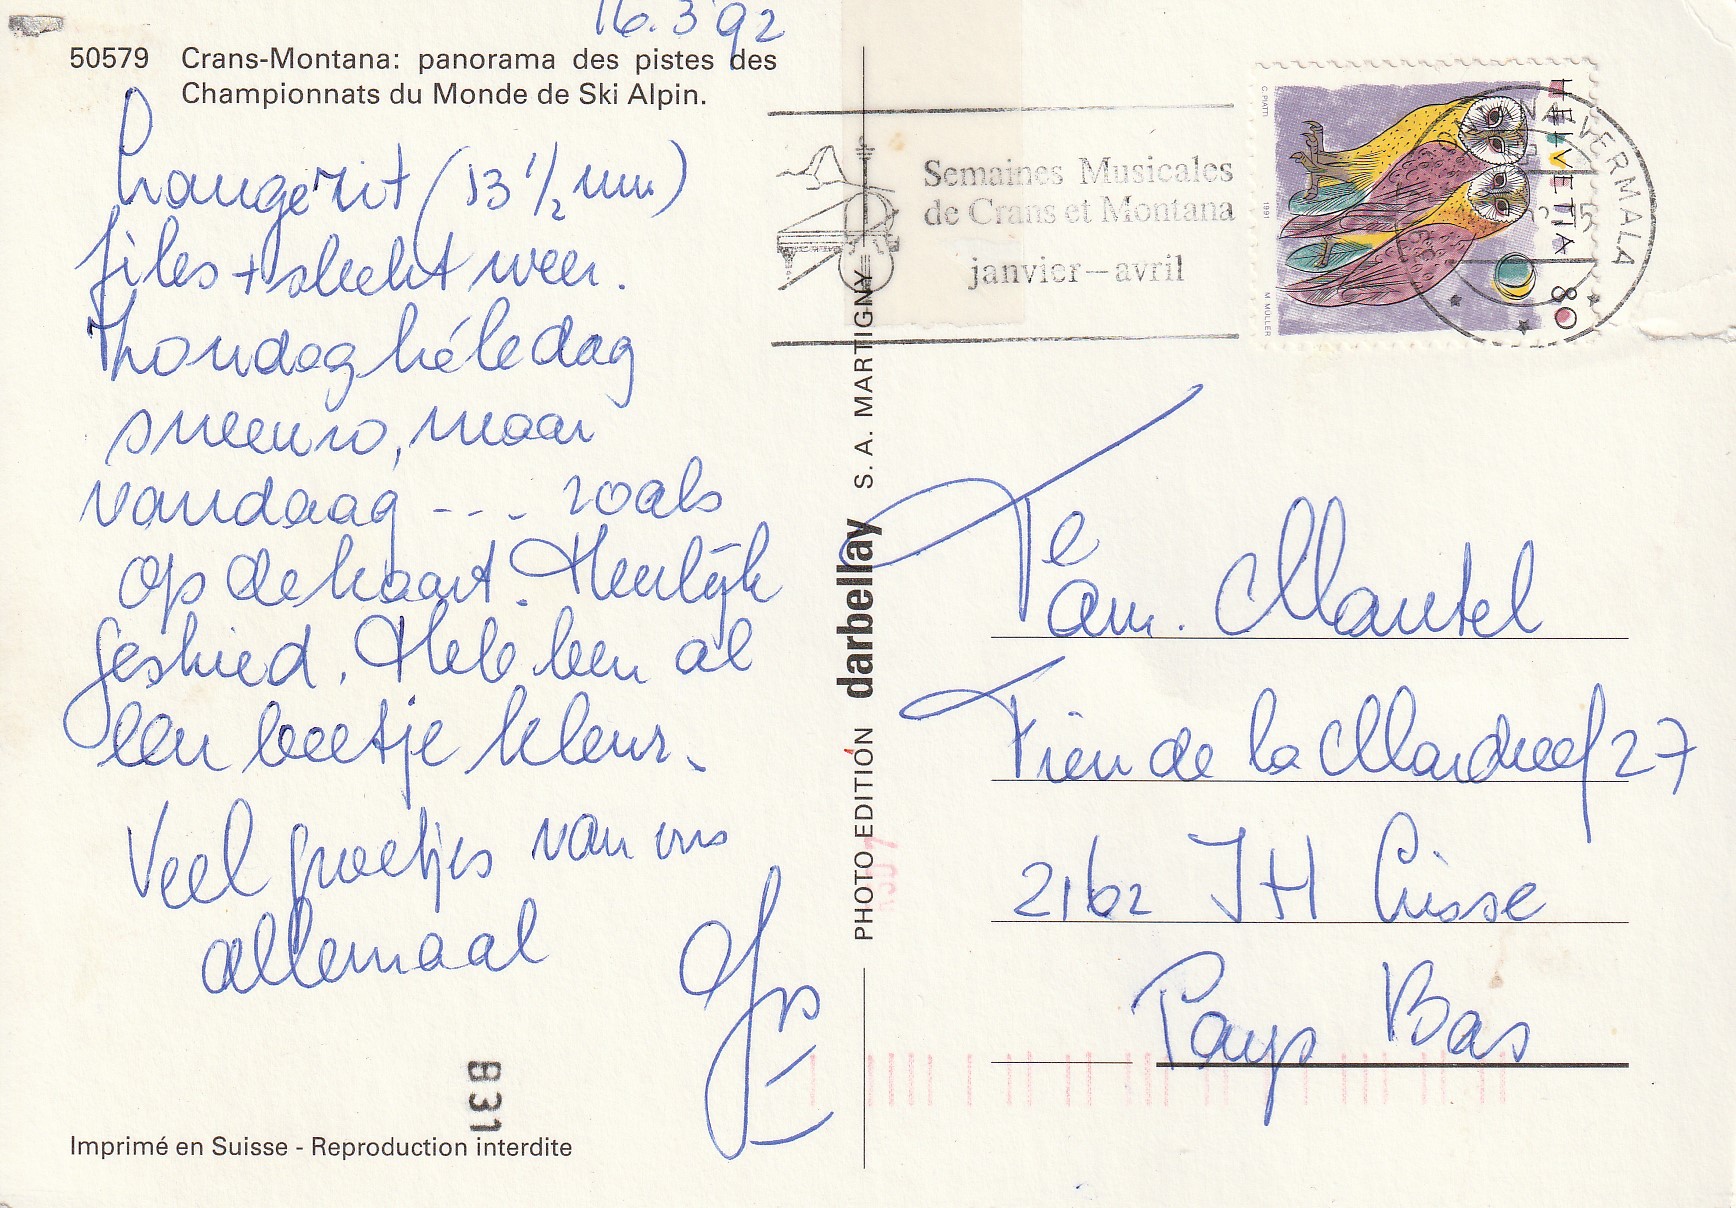 16.3 '92
50579 Crans-Montana: panorama des pistes des
Championnats du Monde de Ski Alpin.
Lange rit (13 1/2 uur)
files + slecht weer.
Zondag héle dag
sneeuw, maar
vandaag --- zoals
op de kaart. Heerlijk
geskied. Hebben al
een beetje kleur.
Veel groetjes van ons
allemaal
Semaines Musicales
de Crans et Montana
janvier – avril
VERMALA
HELVETIA 80
C. PIATTI
1991
M. MÜLLER
Fam. Mantel
Tien de la
27
2162 JH Lisse
Pays Bas
PHOTO EDITION darbellay S. A. MARTIGNY
831
Imprimé en Suisse - Reproduction interdite